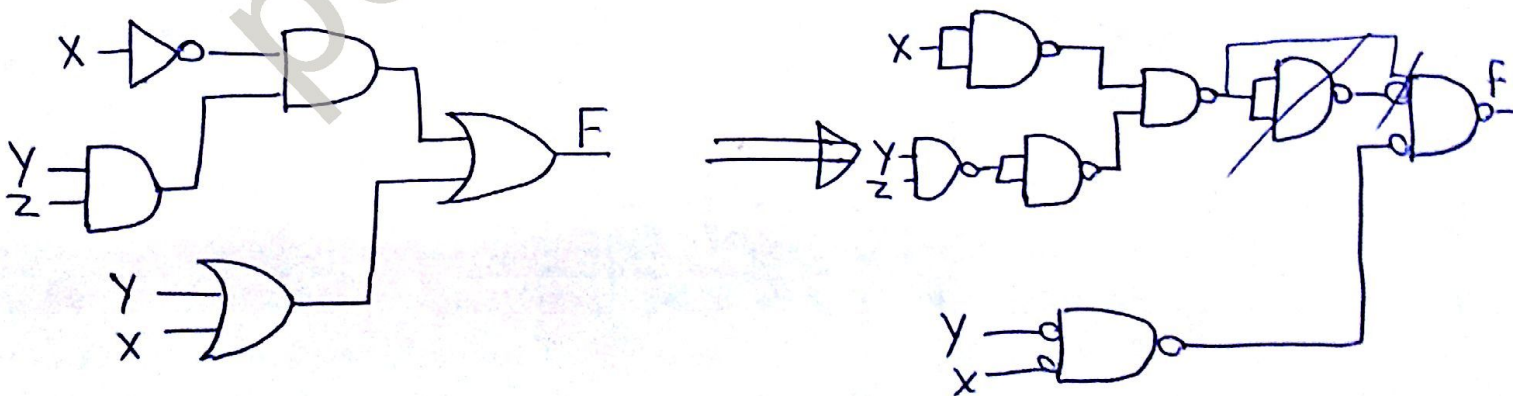 X
Y
Z
F
Y
X
X
Y
Z
F
Y
X